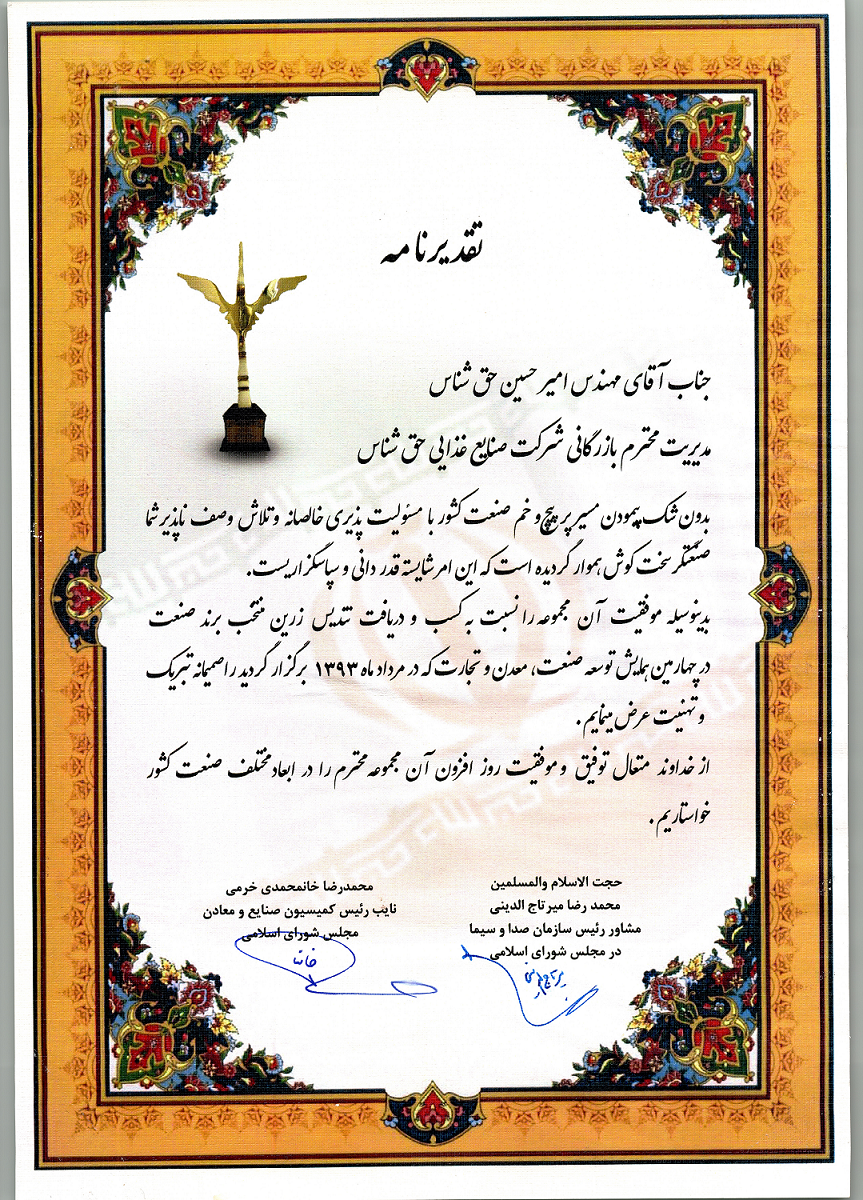 تقدیرنامه
جناب آقای مهندس امیر حسین حق شناس
مدیریت محترم بازرگانی شرکت صنایع غذایی حق شناس
بدون شک پیمودن مسیر پر پیچ و خم صنعت کشور با مسئولیت پذیری خالصانه و تلاش وصف ناپذیر شما
صنعتگر سخت کوش هموار گردیده است که این امر شایسته قدر دانی و سپاسگزاریست.
بدینوسیله موفقیت آن مجموعه را نسبت به کسب و دریافت تندیس زرین منتخب برند صنعت
در چهارمین همایش توسعه صنعت، معدن و تجارت که در مرداد ماه ۱۳۹۳ برگزار گردید را صمیمانه تبریک
و تهنیت عرض مینمایم.
از خداوند متعال توفیق و موفقیت روز افزون آن مجموعه محترم را در ابعاد مختلف صنعت کشور
خواستاریم.
حجت الاسلام والمسلمین
محمد رضا میرتاج الدینی
مشاور رئیس سازمان صدا و سیما
در مجلس شورای اسلامی
محمدرضا خانمحمدی خرمی
نایب رئیس کمیسیون صنایع و معادن
مجلس شورای اسلامی